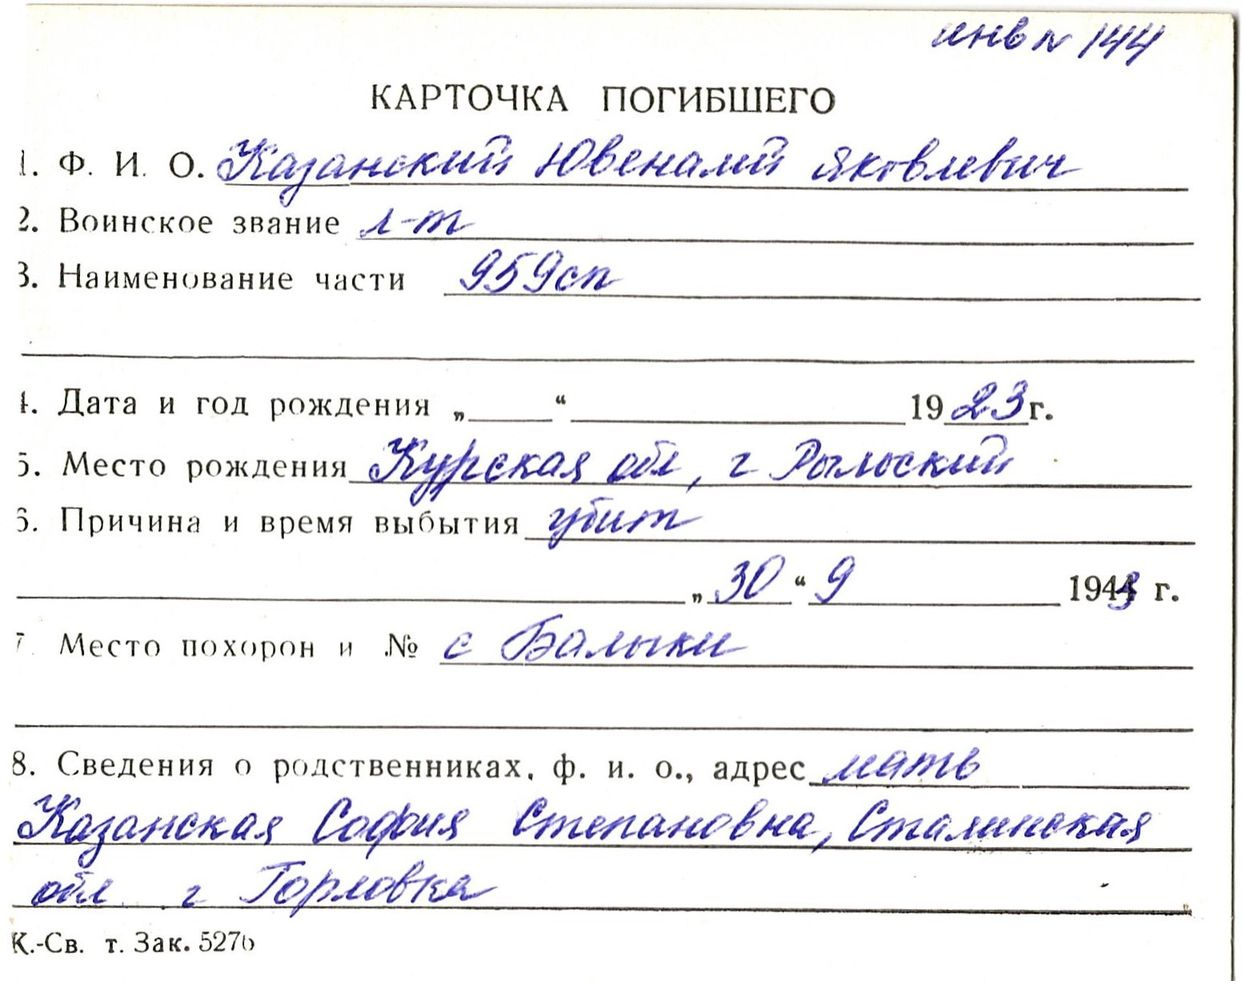 инв № 144
КАРТОЧКА ПОГИБШЕГО
1. Ф. И. О. Казанский Ювеналий Яковлевич
2. Воинское звание л-т
3. Наименование части 959сп
4. Дата и год рождения „ “ 1923 г.
5. Место рождения Курская обл, г Рыльский
6. Причина и время выбытия убит
„ 30 “ 9 1943 г.
7 Место похорон и № с Балыки
8. Сведения о родственниках, ф. и. о., адрес мать
Казанская София Степановна, Сталинская
обл. г Горловка
К.-Св. т. Зак. 5276